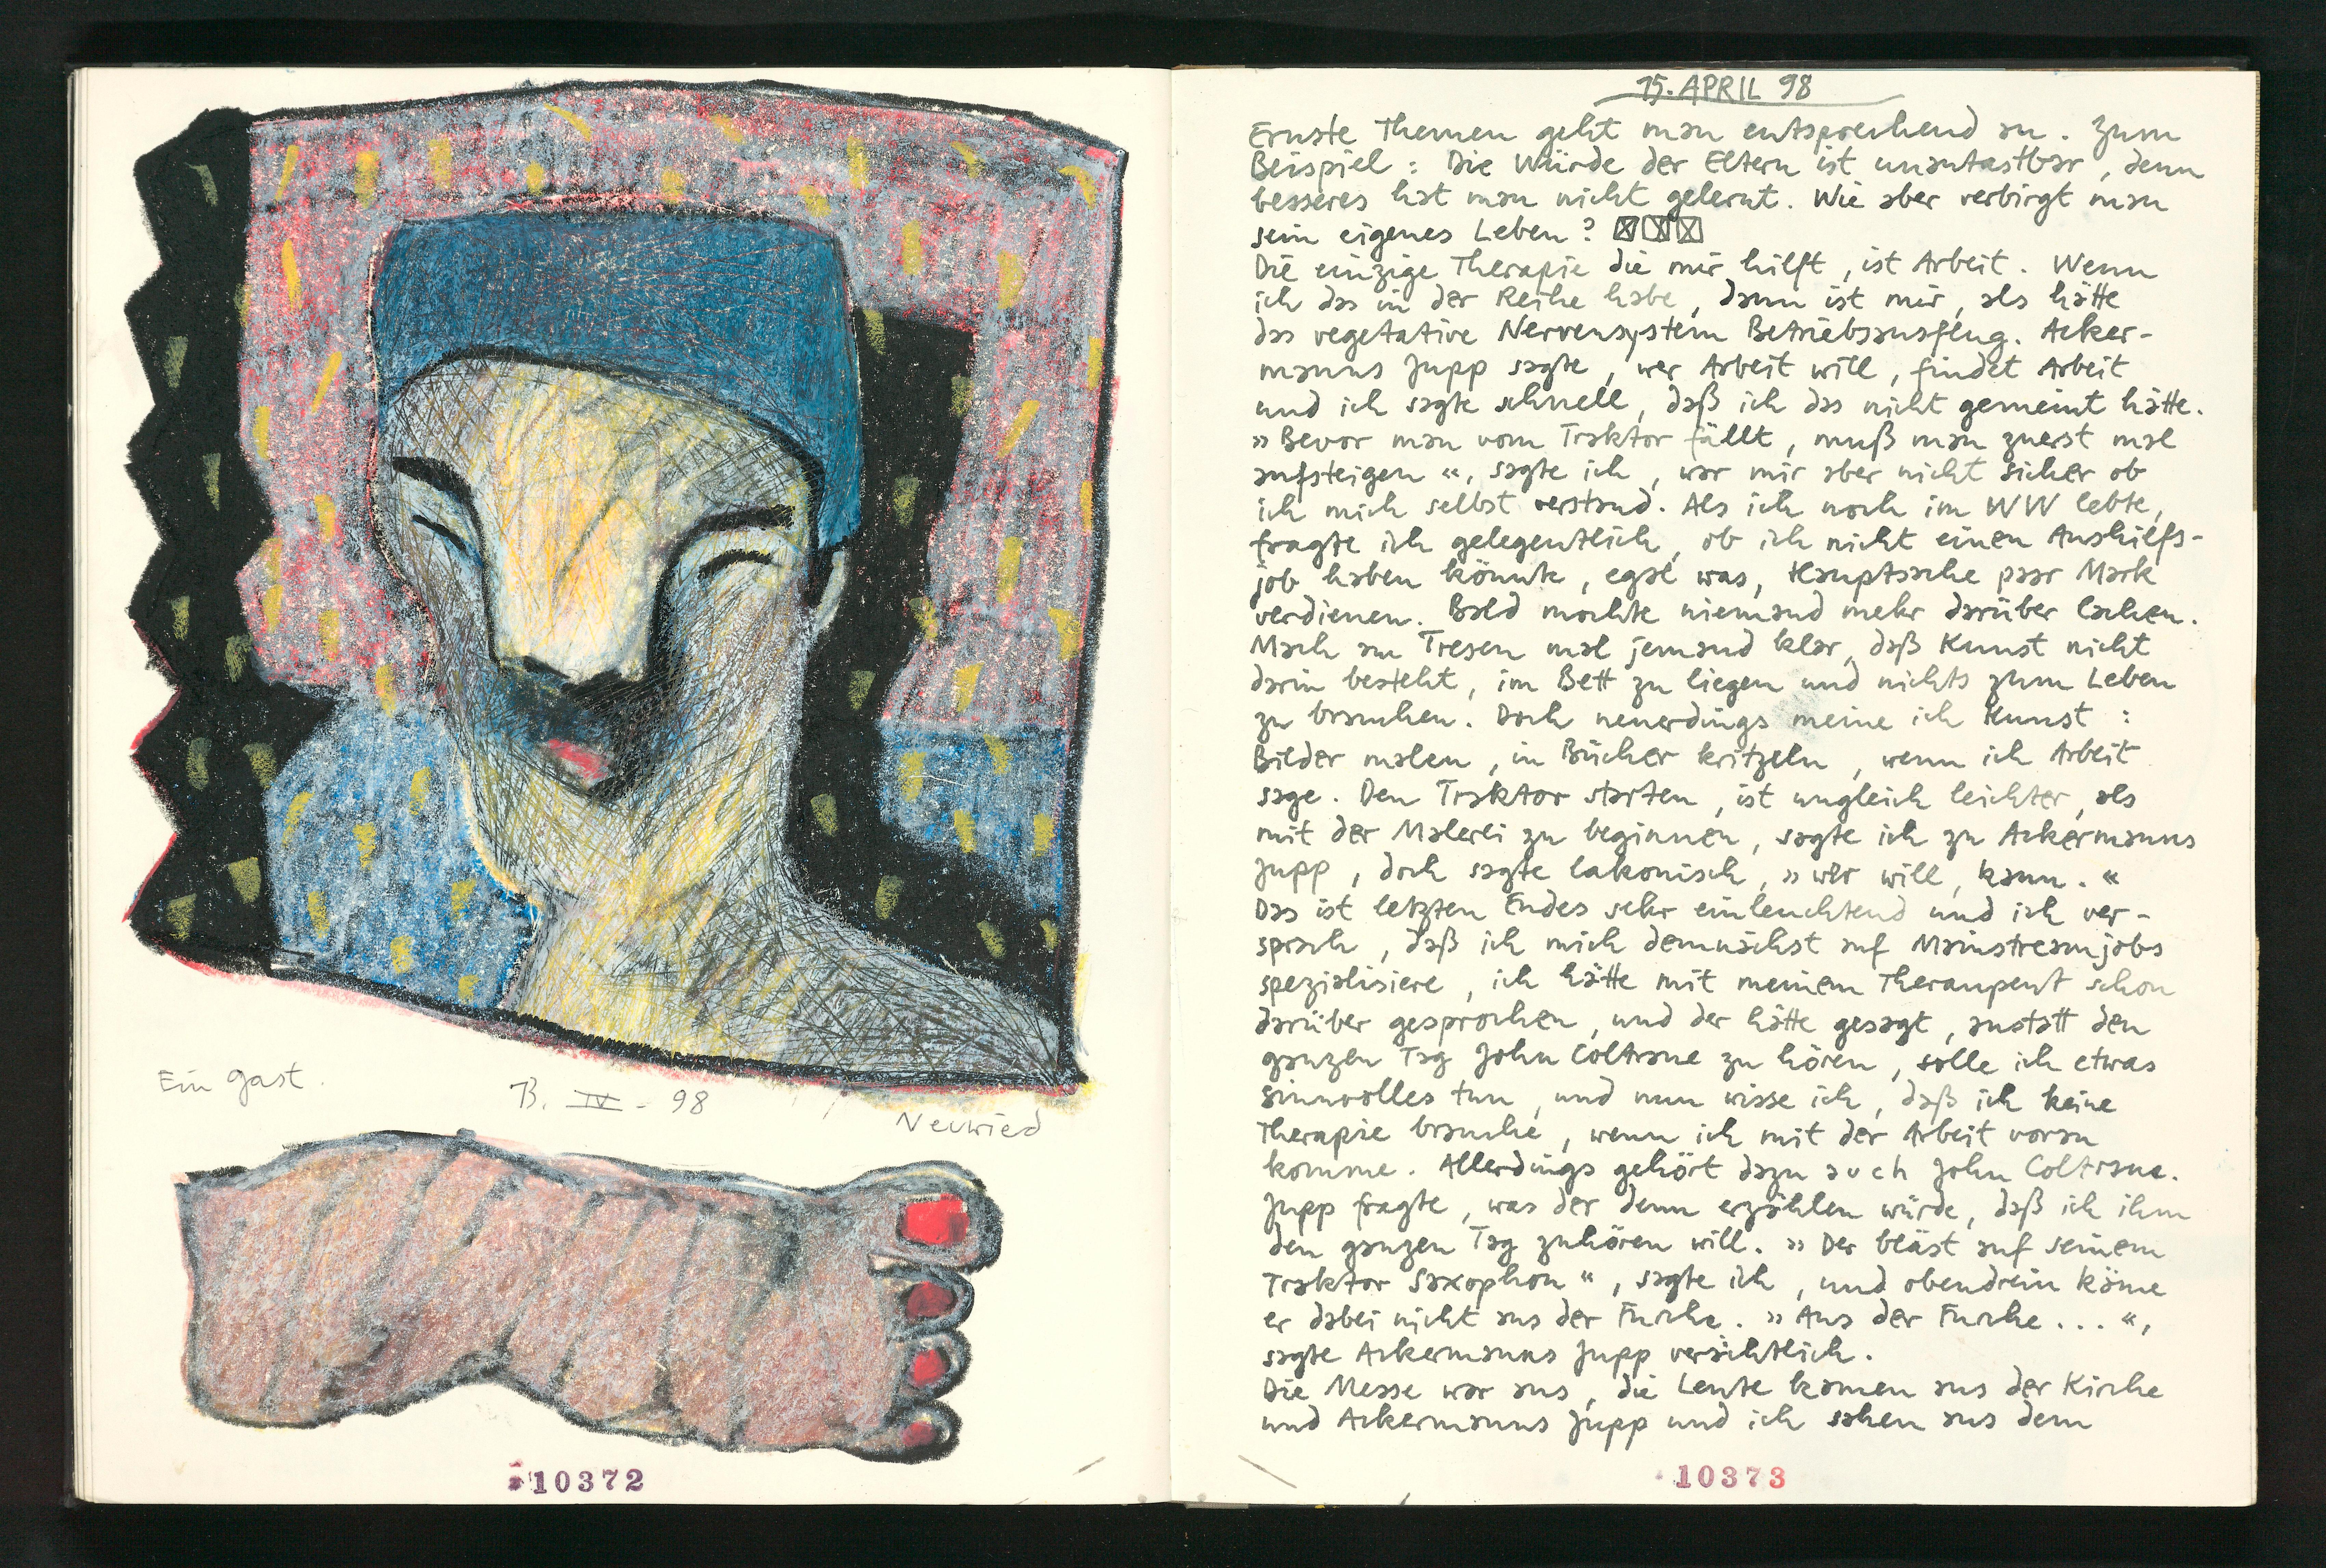 Ein Gast.
13. IV - 98
Neuwied
10372
15. APRIL 98
Ernste Themen geht man entsprechend an. Zum
Beispiel: Die Würde der Eltern ist unantastbar, denn
besseres hat man nicht gelernt. Wie aber verbirgt man
sein eigenes Leben?
Die einzige Therapie die mir hilft, ist Arbeit. Wenn
ich das in der Reihe habe, dann ist mir, als hätte
das vegetative Nervensystem Betriebsausfeug. Acker-
manns Jupp sagte, wer Arbeit will, findet Arbeit
und ich sagte schnell, daß ich das nicht gemeint hätte.
»Bevor man vom Traktor fällt, muß man zuerst mal
aufsteigen«, sagte ich, war mir aber nicht sicher ob
ich mich selbst verstand. Als ich noch im WW lebte,
fragte ich gelegentlich, ob ich nicht einen Aushilfs-
job haben könnte, egal was, Hauptsache paar Mark
verdienen. Bald mochte niemand mehr darüber lachen.
Mach am Tresen mal jemand klar, daß Kunst nicht
darin besteht, im Bett zu liegen und nichts zum Leben
zu brauchen. Doch neuerdings meine ich Kunst:
Bilder malen, in Bücher kritzeln, wenn ich Arbeit
sage. Den Traktor starten, ist ungleich leichter, als
mit der Malerei zu beginnen, sagte ich zu Ackermanns
Jupp, doch sagte lakonisch, »wer will, kann.«
Das ist letzten Endes sehr einleuchtend und ich ver-
sprach, daß ich mich demnächst auf Mainstreamjobs
spezialisiere, ich hätte mit meinem Theraupeut schon
darüber gesprochen, und der hätte gesagt, anstatt den
ganzen Tag John Coltrane zu hören, solle ich etwas
sinnvolles tun, und nun wisse ich, daß ich keine
Therapie brauche, wenn ich mit der Arbeit voran
komme. Allerdings gehört dazu auch John Coltrane.
Jupp fragte, was der denn erzählen würde, daß ich ihm
den ganzen Tag zuhören will. »Der bläst auf seinem
Traktor Saxophon«, sagte ich, und obendrein käme
er dabei nicht aus der Furche. »Aus der Furche...«,
sagte Ackermanns Jupp verächtlich.
Die Messe war aus, die Leute kamen aus der Kirche
und Ackermanns Jupp und ich sahen aus dem
10373